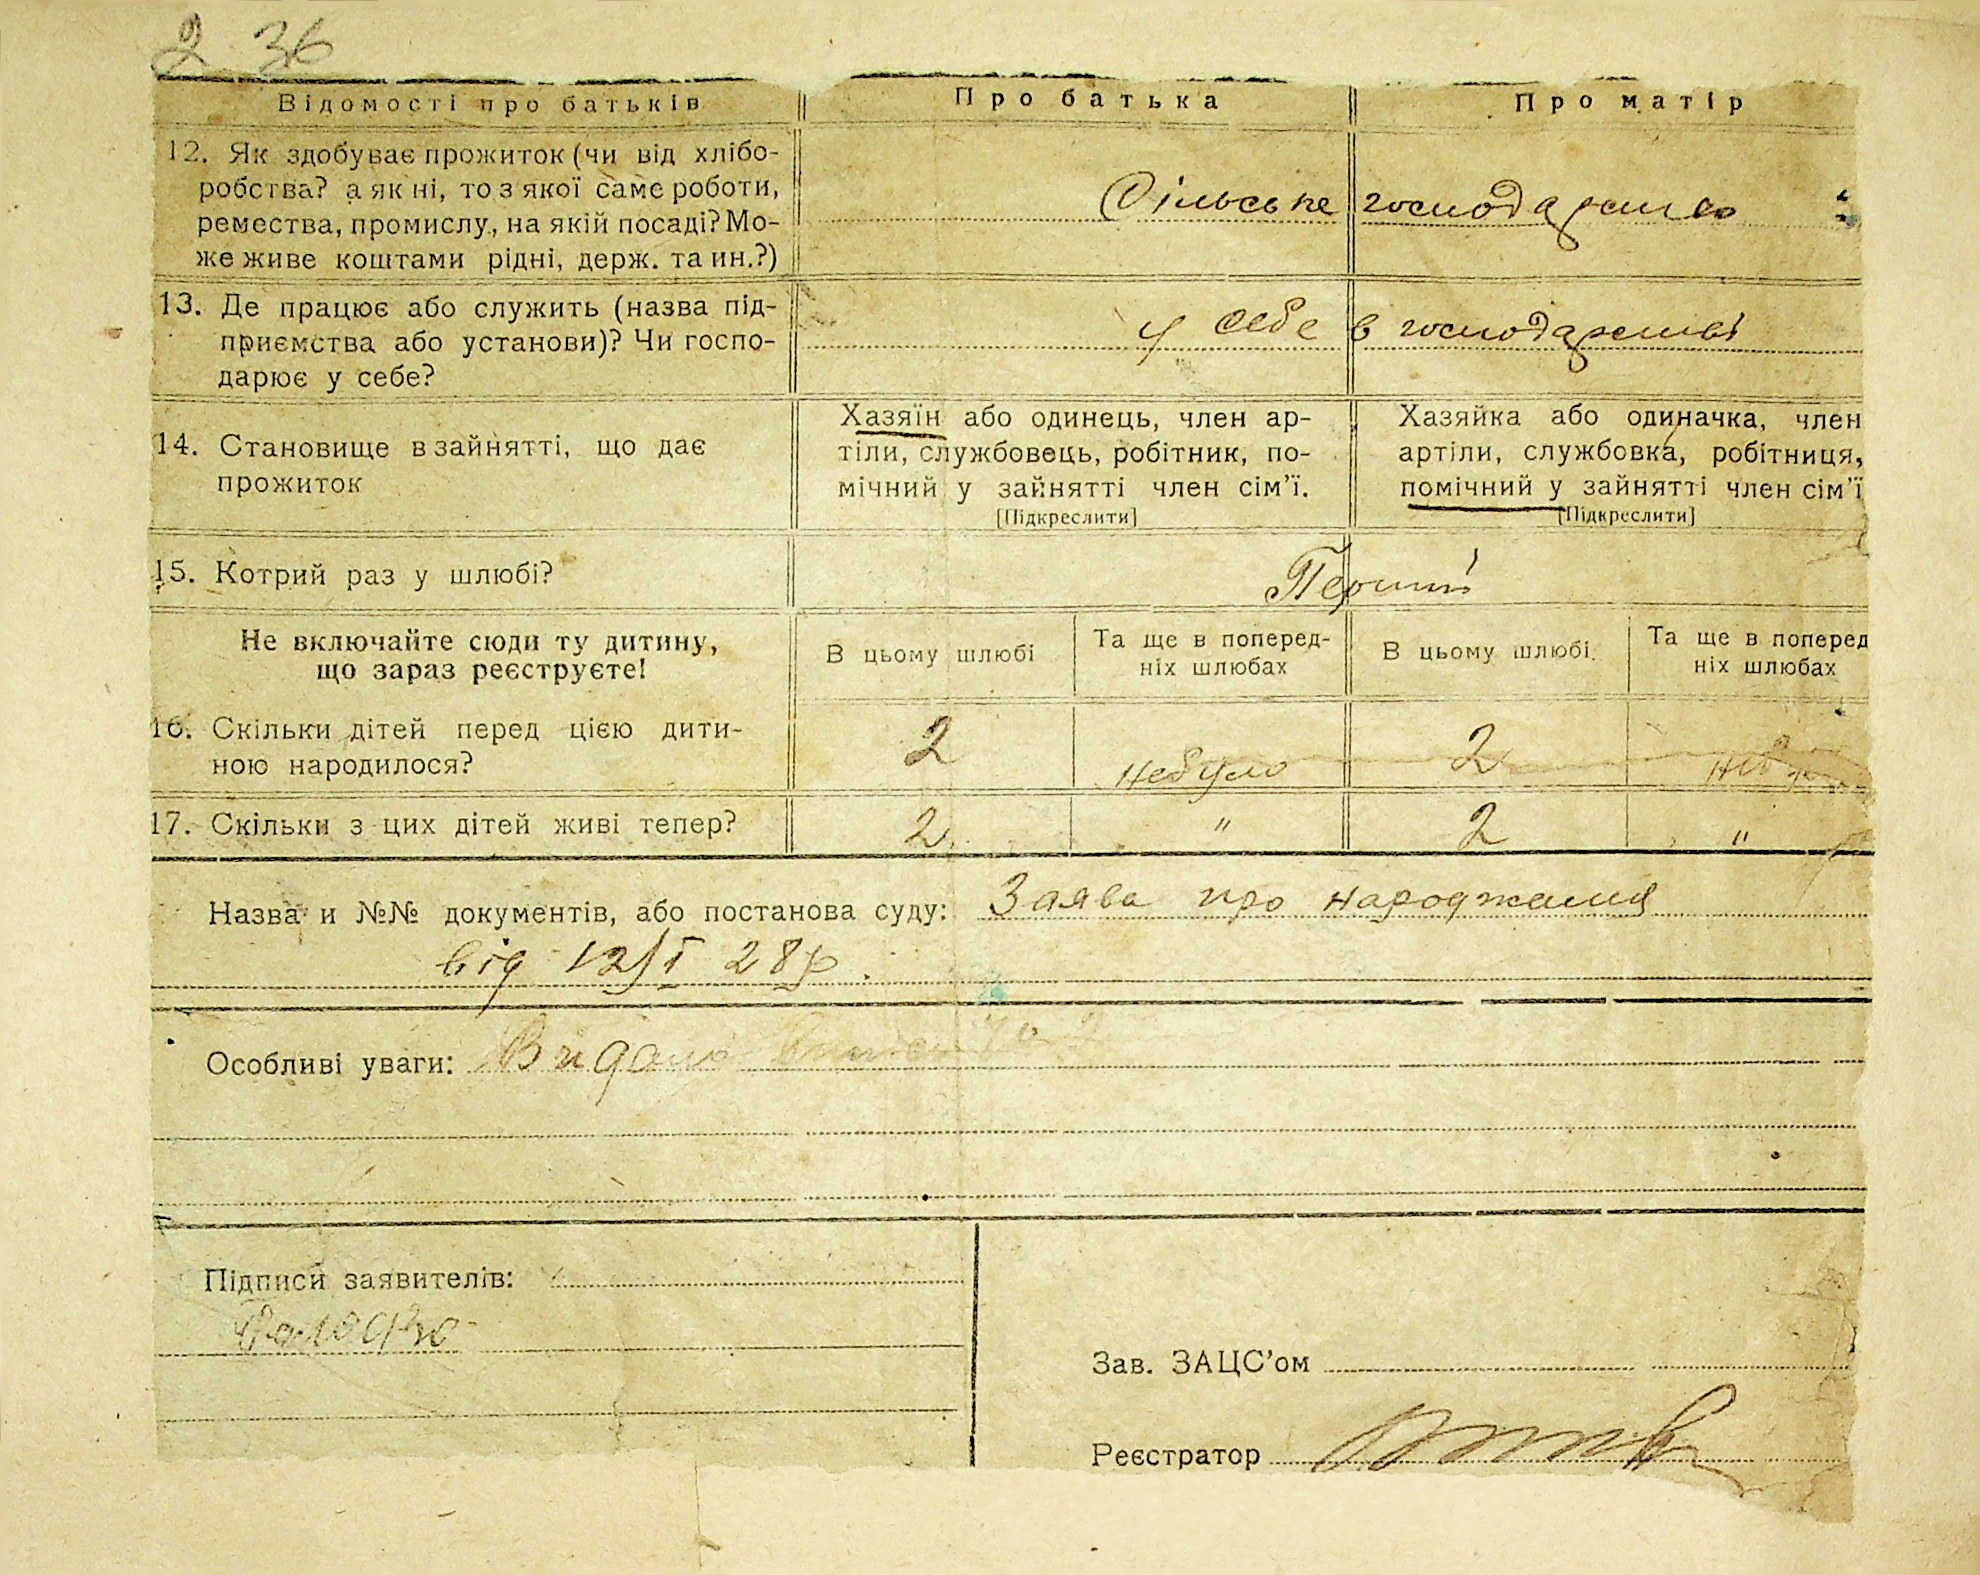 2 36
Відомості про батьків Про батька Про матір
12. Як здобуває прожиток (чи від хлібо-
робства? а як ні, то з якої саме роботи,
ремества, промислу, на якій посаді? Мо-
же живе коштами рідні, держ. та ин.?)
Сільське господарство
13. Де працює або служить (назва під-
приємства або установи)? Чи госпо-
дарює у себе?
у себе в господарстві
14. Становище в зайнятті, що дає
прожиток
Хазяїн або одинець, член ар-
тіли, службовець, робітник, по-
мічний у зайнятті член сім’ї.
[Підкреслити]
Хазяйка або одиначка, член
артіли, службовка, робітниця,
помічний у зайнятті член сім’ї
[Підкреслити]
15. Котрий раз у шлюбі?
Перший
Не включайте сюди ту дитину,
що зараз реєструєте!
В цьому шлюбі
Та ще в поперед-
ніх шлюбах
В цьому шлюбі
Та ще в поперед
ніх шлюбах
16. Скільки дітей перед цією дити-
ною народилося?
2 небуло 2
17. Скільки з цих дітей живі тепер?
2 " 2 "
Назва и №№ документів, або постанова суду: Заява про народження
від 12/I 28р.
Особливі уваги: Видано
Підписи заявителів:
Зав. ЗАЦС’ом
Реєстратор